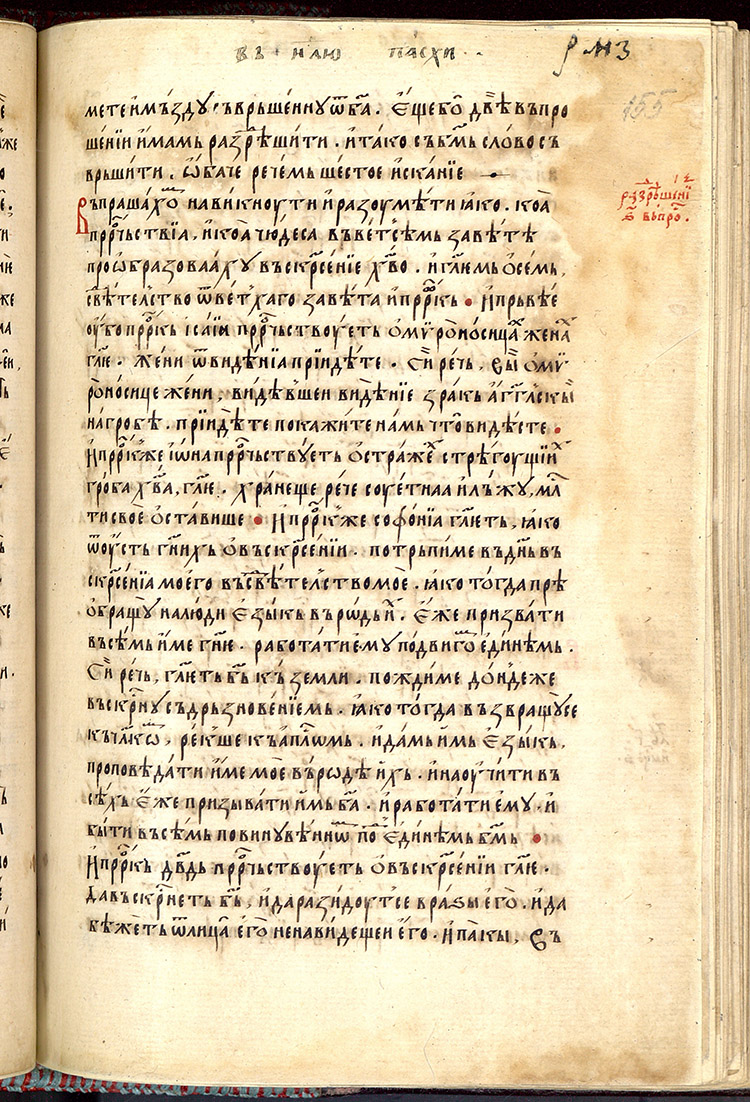 въ н҃лю пасхи
рмз
155
мете и мъздꙋ съврьшеннꙋ ѿ б҃а . Е҆ще бѡ̀ двѣ въпро
шенїи и҆мамь разрѣшити . и҆ тако съ б҃мь слово съ
врьшити . Ѡ҆баче речемь шестое и҆сканїе
разрѣшенїе
въпро .
Въпрашахѡⷨ навикноути и҆ разоумѣти ꙗ҆ко . коѧ҆
прⷪ҇рчьствїа , и҆ коѧ҆ чюдеса въ ветсѣмь завѣтѣ
проѡ҆бразоваахꙋ въскрⷭ҇сенїе х҃во . и҆ гл҃емь о҆семь ,
свѣтелство ѿ ветхаго завѣта и҆ прⷪ҇ркь • И҆ прьвѣе
оу҆бо прⷪ҇ркь і҆саїа прⷪ҇рчьствоуеть о҆ мѵ
роносицаⷯ женаⷯ
гл҃е . жени ѿ видѣнїа прїидѣте . Си҆ речь , вы̀ о҆ мѵ
роносице жени , видѣвшеи видѣнїе зракь агг҃лскы
на гробѣ . прїидѣте покажите намь что̀ видѣсте •
И҆ прⷪ҇ркже і҆ѡна прⷪ҇рчьствꙋеть о҆ стражеⷯ стрѣгоущїиⷯ
гроба х҃ва , гл҃е . хранеще рече соуетнаа и҆ лъжꙋ , мл҃
ти своѐ ѡ҆ставише • И҆ прⷪ҇ркже софѡнїа гл҃еть , ꙗ҆ко
ѿ оу҆сть гн҃ихь о҆ въскрⷭ҇сенїи . потрьпиме въ дн҃ь въ
скрⷭ҇сенїа моего въ свѣтелство мое . ꙗ҆ко тогда прѣ
ѡ҆бращꙋ на люди е҆зыкь въ рѡдьиⷯ . Е҆же призвати
въсѣмь и҆ме гн҃е . работати е҆мꙋ подвигоⷨ е҆динѣмь .
Си҆ речь , гл҃еть б҃ь къ земли . пождиме до́идеже
въскрⷭ҇нꙋ съ дрьзновенїемь . ꙗ҆ко тогда възвращꙋсе
къ чл҃кѡⷨ , рекше къ апⷭ҇лѡмь . и҆ дамь и҆мь е҆зыкь ,
проповѣдати и҆ме мое въ рѡдѣ и҆хь . и҆ наоу҆чити въ
сѣхь е҆же призывати и҆мь б҃а . и҆ работати е҆мꙋ . и҆
быти въсѣмь повинꙋвѣннѡⷨ поⷣ е҆динѣмь б҃мь •
И҆ прⷪ҇ркь дв҃дь прⷪ҇рчьствоуеть о҆ въскрⷭ҇сенїи гл҃е .
да въскрⷭ҇неть б҃ь , и҆ да разидоутсе врази е҆го̀ . и҆ да
бѣжеть ѿ лица е҆го̀ ненавидещеи е҆го . И҆ пакы , въ